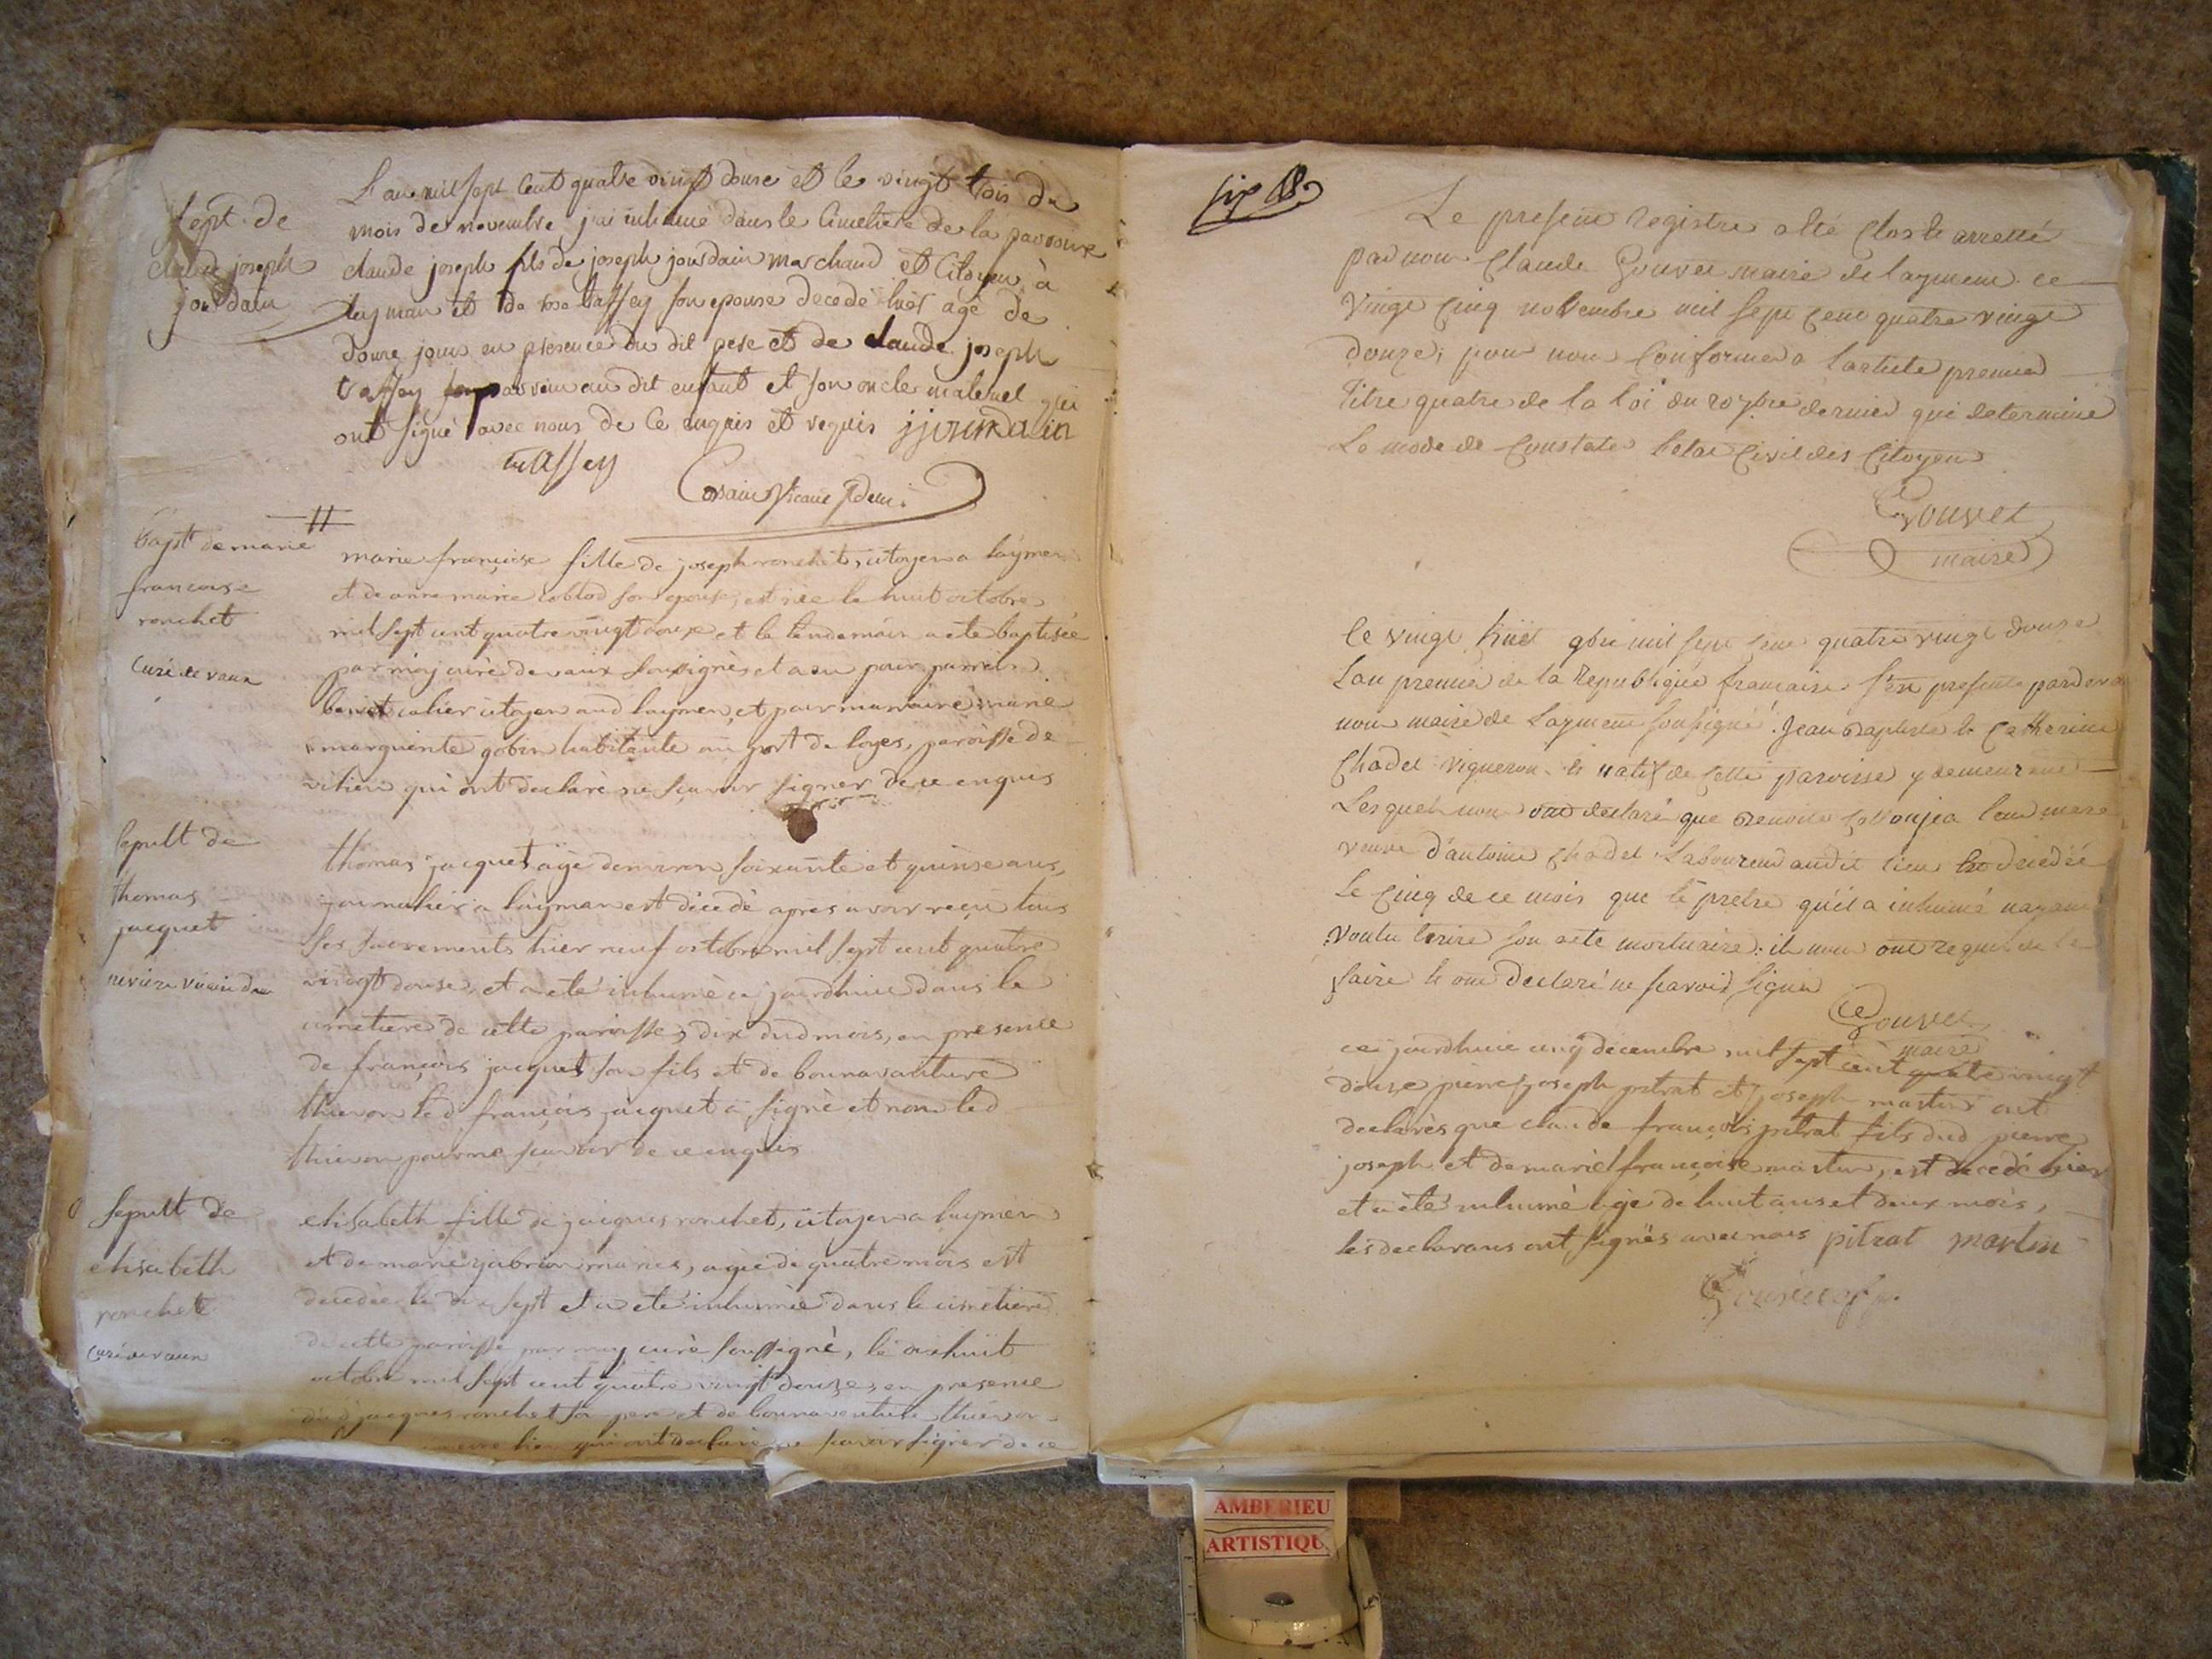 L'an mil sept cent quatre vingt douse et le vingt trois du
mois de novembre j'ai inhumé dans le cimetière de la paroisse
claude joseph fils de joseph jourdain marchand et citoyen à
layman et de rose tassey son epouse decedé hier agé de
douze jours en presence du dit pere et de claude joseph
tassey parrain au dit enfant et son oncle maternel qui
ont signé avec nous de ce enquis et requis jjourdain
tassey
vicaire
sept. de
claude joseph
jourdain
bapt de marie
francoise
ronchet
curé de vaux
marie françoise fille de joseph ronchet, citoyen a laymen
et de anne marie son epouse, est née le huit octobre
mil sept cent quatre vingt douze et le lendemain a ete baptisée
par moy curé de vaux soussignés et a eu pour parrain
benoit citoyen aud laymen, et pour marraine marie
marguerite gobin habitante au port de loyes, paroisse de
vilieu qui ont declaré ne scavoir signer de ce enquis
sepult de
thomas
jacquet
thomas jacquet agé denviron soixante et quinse ans,
journalier a layman est décédé apres avoir reçu tous
ses sacrements hier neuf octobre mil sept cent quatre
vingt douse, et a eté inhumé ce jourdhui dans le
cimetiere de cette paroisse, dix dud mois, en presence
de françois jacquet son fils et de bonnavanture
thievon led françois jacquet a signé et non led
thievon pour ne scavoir de ce enquis
sepult de
elisabeth
ronchet
curé de vaux
elisabeth fille de jacques ronchet, citoyen a laymen
et de marie mariés, agée de quatre mois est
decedée le dix sept et a eté inhumée dans le cimetiere
de cette paroisse par moy curé soussigné, le dixhuit
octobre mil sept cent quatre vingt douze, en presence
dud jacques ronchet son pere et de bonnavanture thievon
qui ont declaré ne scavoir signer de ce
six
Le present Registre a eté clos et arretté
par nous Claude Gouvet maire de layment ce
vingt cinq novembre mil sept cent quatre vingt
douze, pour nous conformer a l'article premier
titre quatre de la loi du 20 7bre dernier qui determine
Le mode de constater l'etat civil des citoyens
Gouvet
maire
le vingt huit 9bre mil sept cent quatre vingt douse
L'an premier de la Republique francaise s'est presenté pardevant
nous maire de Layment soussigné Jean Baptiste et Catherine
Chadel vigneron et natif de cette paroisse y demeurant
Lesquels nous ont declaré que Benoite leur mere
veuve d'antoine Chadel Laboureur audit lieu est decedée
Le cinq de ce mois que le pretre qui l'a inhumé nayant
voulu ecrire son acte mortuaire: ils nous ont requis de le
faire et ont declaré ne scavoir signer
Gouvet
maire
ce jourdhuie cinq decembre mil sept cent quatre vingt
douze pierre joseph pitrat et joseph martin ont
declarés que claude françois pitrat fils dud pierre
joseph et de marie françoise martin, est decedé hier
et a été inhumé agé de huit ans et deux mois,
les declarans ont signés avec nous pitrat martin
AMBERIEU
ARTISTIQU